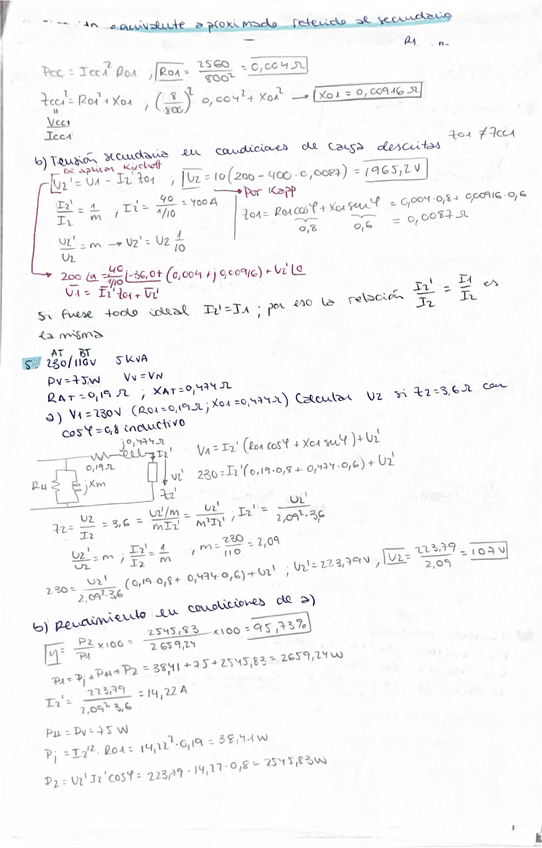 equivalente aproximado referido al secundario
Pcc = Icc1² R01 , R01 = 2560/800² = 0,004 Ω
Zcc1² = R01² + X01 , (8/800)² 0,004² + X01² → X01 = 0,00916 Ω
Vcc1/Icc1
b) Tensión secundaria en condiciones de carga descritas Z01 ≠ Zcc1
De aplicar Kirchoff
U2' = U1 - I2' Z01 , U2 = 10 (200 - 400 · 0,0087) = 1965,2 V
Por Kapp
I2'/I2 = 1/m , I2' = 40/1/10 = 400 A
Z01 = R01 cosφ + X01 senφ = 0,004 · 0,8 + 0,00916 · 0,6
0,8 0,6 = 0,0087 Ω
U2'/U2 = m → U2' = U2 1/10
200 = 40/1/10 |-36,87 (0,004 + j 0,00916) + U2' |0
U1 = I2' Z01 + U2'
Si fuese todo ideal I2' = I1 ; por eso la relación I2'/I2 = I1/I2 es
la misma
AT BT
5 230/110V 5 KVA
PV = 75W VV = VN
RAT = 0,19 Ω ; XAT = 0,474 Ω
a) V1 = 230V (R01 = 0,19 Ω ; X01 = 0,474 Ω) Calcular U2 si Z2 = 3,6 Ω con
cosφ = 0,8 inductivo
j0,474 Ω
I2'
0,19 Ω
V1 = I2' (R01 cosφ + X01 senφ) + U2'
RH jXm U2' Z2'
230 = I2' (0,19 · 0,8 + 0,474 · 0,6) + U2'
Z2 = U2/I2 = 3,6 = U2'/m / mI2' = U2'/m²I2' ; I2' = U2'/2,09² · 3,6
U2'/U2 = m ; I2'/I2 = 1/m , m = 230/110 = 2,09
230 = U2'/2,09² · 3,6 (0,19 · 0,8 + 0,474 · 0,6) + U2' ; U2' = 223,79 V , U2 = 223,79/2,09 = 107 V
b) Rendimiento en condiciones de a)
η = P2/P1 x100 = 2545,83/2659,24 x100 = 95,73%
P1 = Pj + PH + P2 = 38,41 + 75 + 2545,83 = 2659,24 W
I2' = 223,79/2,09² 3,6 = 14,22 A
PH = PV = 75 W
Pj = I2'² · R01 = 14,22² · 0,19 = 38,41 W
P2 = U2' I2' cosφ = 223,79 · 14,22 · 0,8 = 2545,83 W